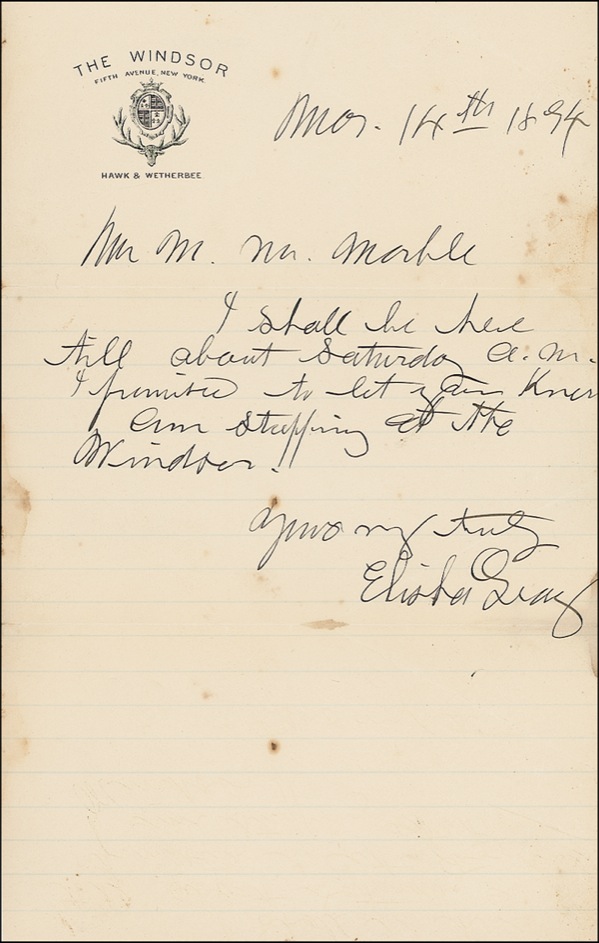 THE WINDSOR
FIFTH AVENUE, NEW YORK.
HAWK & WETHERBEE
Mar. 14th 1894
Mr M. M. Marble
I shall be here
till about Saturday a.m.
I promised to let you know
I am stopping at the
Windsor.
Yours very truly
Elisha Gray